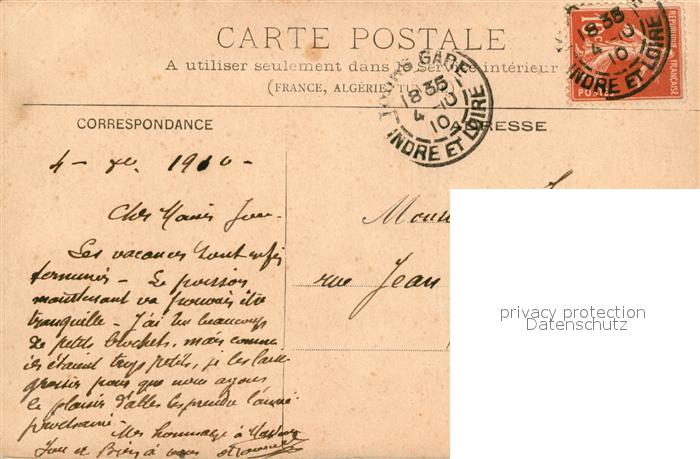 CARTE POSTALE
A utiliser seulement dans le Service intérieur
(FRANCE, ALGÉRIE, TUNISIE)
RÉPUBLIQUE FRANÇAISE
POSTES
TOURS GARE
18 35
4 - 10
10
INDRE ET LOIRE
18 35
4 - 10
10
INDRE ET LOIRE
CORRESPONDANCE
ADRESSE
4 - 1910 -
Cher
Les vacances sont
terminées - Le poisson
maintenant va pouvoir être
tranquille - J'ai vu beaucoup
de petits brochets, mais comme
ils étaient trop petits, je les laisse
grossir pour que nous ayons
le plaisir d'aller les prendre l'année
prochaine -
Mes hommages à
et Bien à vous
rue Jean
privacy protection
Datenschutz